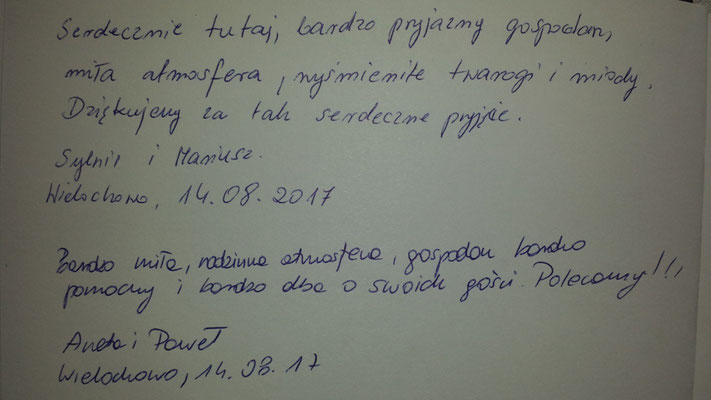 Serdecznie tutaj, bardzo przyjazny gospodarz,
miła atmosfera, wyśmienite twarogi i miody.
Dziękujemy za tak serdeczne przyjęcie.
Sylwia i Mariusz.
Wielochowo, 14.08.2017
Bardzo miła, rodzinna atmosfera, gospodarz bardzo
pomocny i bardzo dba o swoich gości. Polecamy!!!
Aneta i Paweł
Wielochowo, 14.08.17